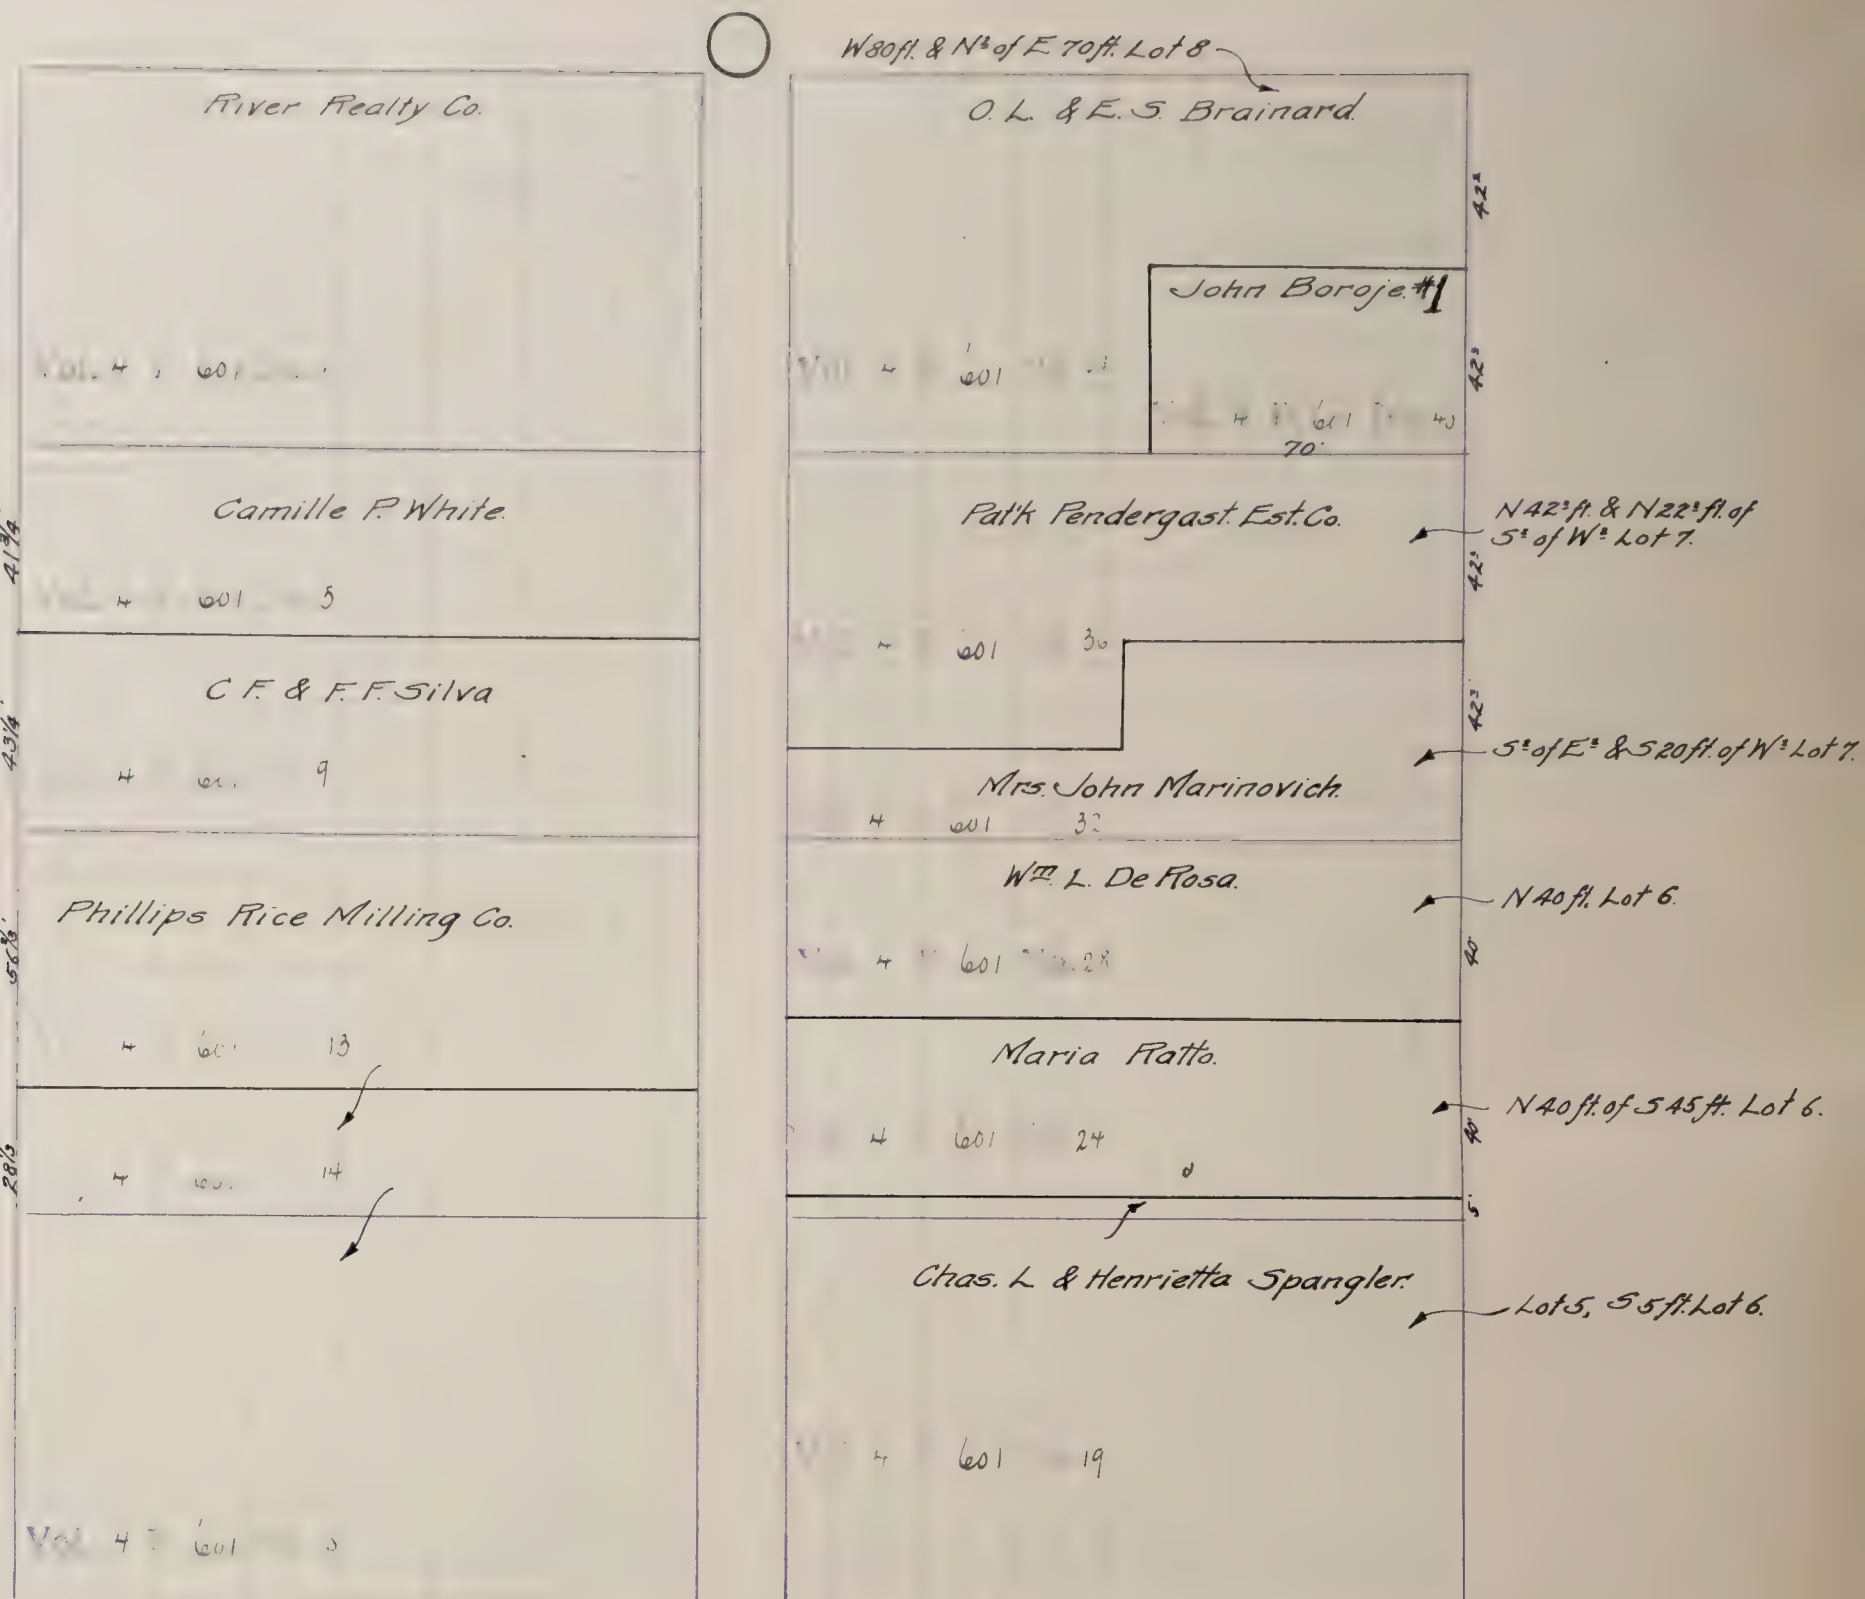 W 80 ft. & N½ of E 70 ft. Lot 8
River Realty Co.
Vol. 4 601
41¾'
Camille P. White.
4 601 5
43¼'
C F. & F. F. Silva
4 9
56⅔'
Phillips Rice Milling Co.
4 13
28⅓
4 14
Vol. 4 601
O. L. & E. S. Brainard.
42½
Vol 4 601
John Boroje. #1
42½
4 601 40
70'
Pat'k Pendergast. Est. Co.
N 42½ ft. & N 22½ ft. of
S½ of W½ Lot 7.
42½
4 601 36
42½'
S½ of E½ & S 20 ft. of W½ Lot 7.
Mrs. John Marinovich.
4 601 32
Wm. L. De Rosa.
N 40 ft. Lot 6.
40'
4 601 28
Maria Ratto.
N 40 ft. of S 45 ft. Lot 6.
40'
4 601 24
5'
Chas. L & Henrietta Spangler.
Lot 5, S 5 ft. Lot 6.
4 601 19